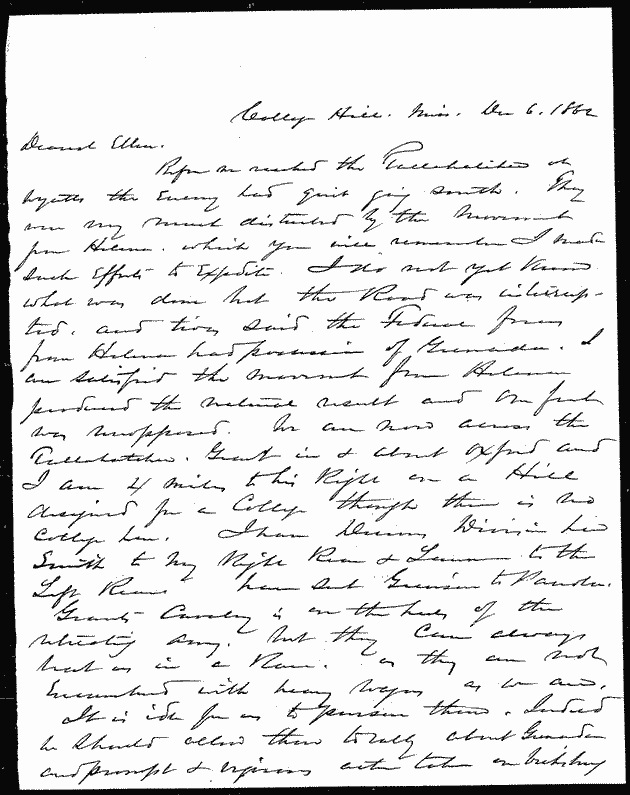 College Hill, Miss. Dec 6. 1862
Dearest Ellen.
Before we reached the Tallahatchie at
Wyatts the Enemy had quit going south. They
were very much disturbed by the Movement
from Helena. which you will remember I made
such Efforts to Expedite. I do not yet Know
what was done but the Road was interrup-
ted. and twas said the Federal forces
from Helena had possession of Grenada. I
am satisfied the movement from Helena
produced the natural result and Our front
was unopposed. We are now across the
Tallahatchie. Grant in & about Oxford and
I am 4 miles to his Right on a Hill
designed for a College though there is no
College here. I have Denvers Division here
Smith to my Right Rear & Lauman to the
Left Rear have sent Grierson to Panola.
Grants Cavalry is on the heels of the
retreating army. but they can always
beat us in a Race. as they are not
Encumbered with heavy wagons as we are.
It is idle for us to pursue them. Indeed
we should allow them to rally about Grenada
and prompt & vigorous action taken on Vicksburg